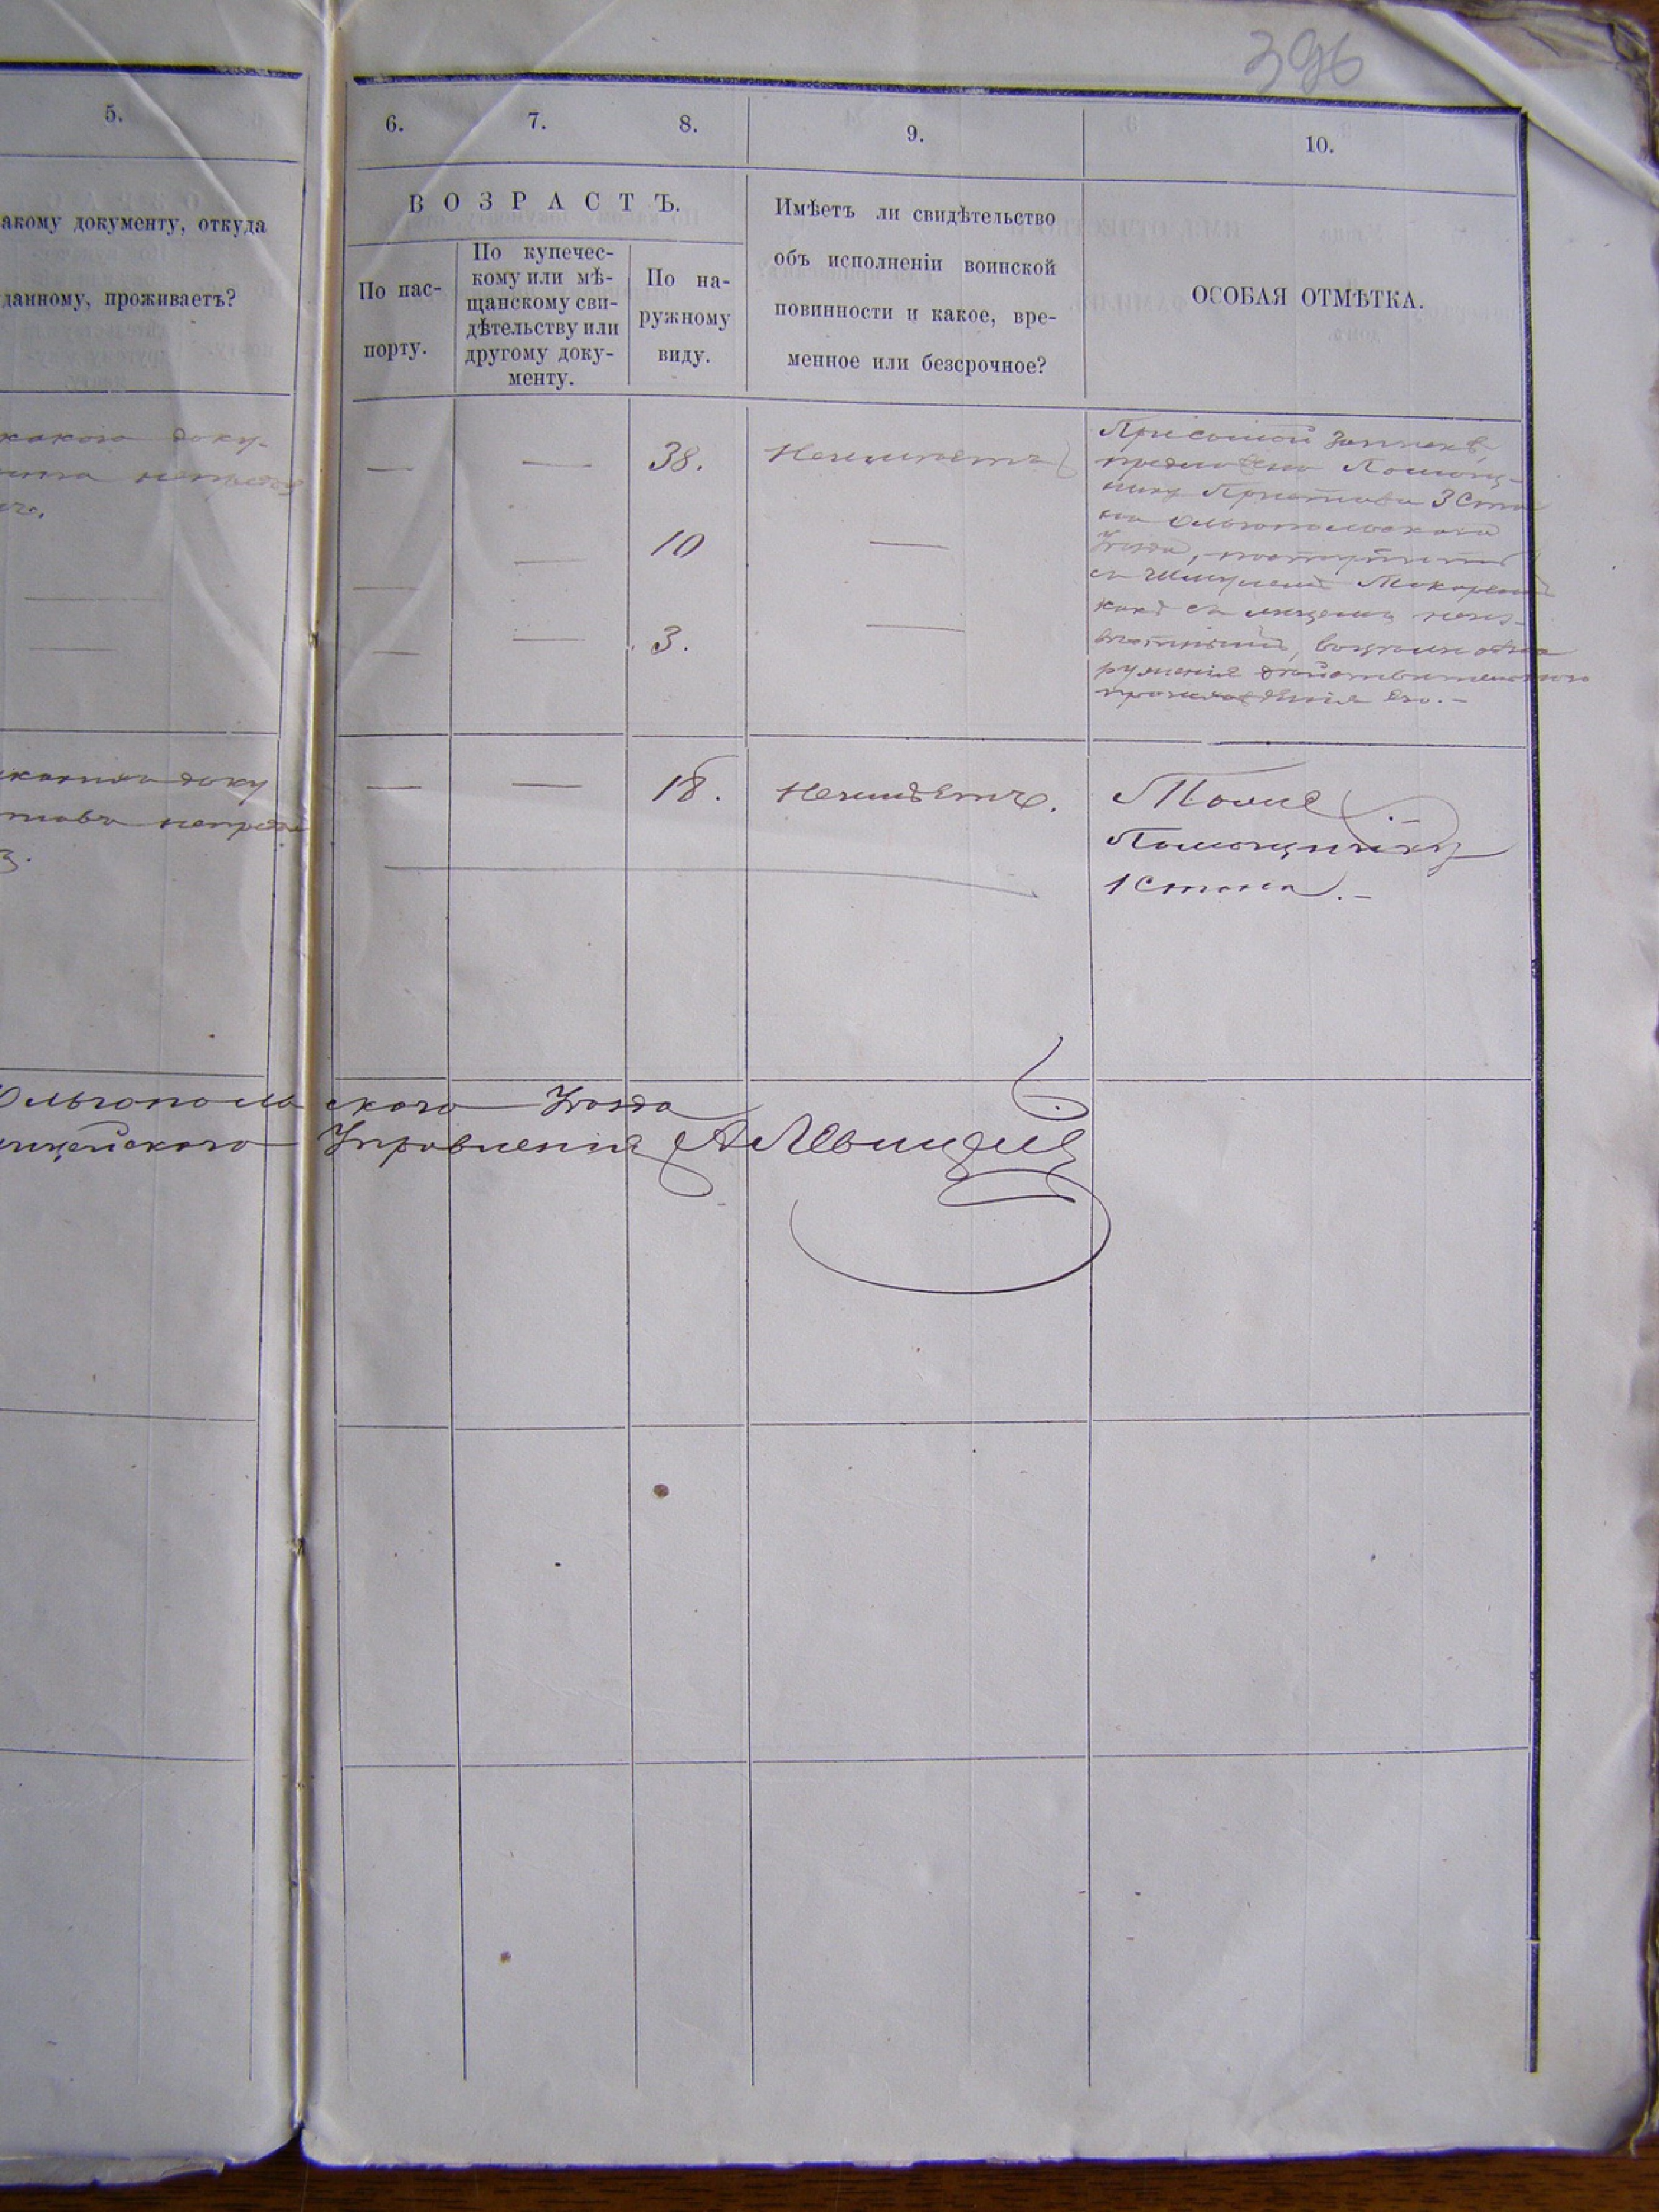 396
5.
6.
7.
8.
9.
10.
акому документу, откуда
данному, проживаетъ?
ВОЗРАСТЪ.
По пас-
порту.
По купечес-
кому или мѣ-
щанскому сви-
дѣтельству или
другому доку-
менту.
По на-
ружному
виду.
Имѣетъ ли свидѣтельство
объ исполненіи воинской
повинности и какое, вре-
менное или безсрочное?
ОСОБАЯ ОТМѢТКА.
какого доку-
— — 38. Неимѣетъ
— — 10 —
— — 3. —
предложено Помощ-
нику Пристава 3 Ста
на Ольгопольскаго
Уѣзда, поступить
какъ съ лицемъ неиз-
вѣстнымъ, впредь до обна
руженія дѣйствительного
происхожденія его.-
доку
— — 18. Неимѣетъ.
Тоже
Помощнику
1 Стана.-
Ольгопольскаго Уѣзда
Управленія А Левицкій